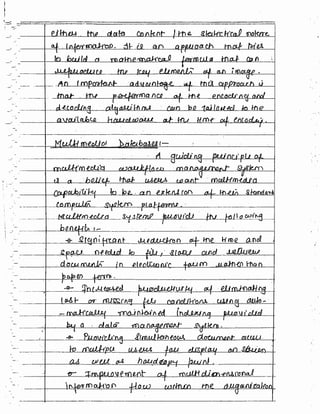 either the data content / the statistical nature
of information. It is an approach that tries
to build a mathematical formula that can
the key elements of an image.
An important advantage of this approach is
that the performance of the encoding and
decoding algorithms can be tailored to the
available hardware at the time of encoding.
Multimedia Databases :-
A guiding principle of
multimedia management system
is a belief that users want multimedia
capability to be an extension of their standard
computer system platforms.
Multimedia systems provide the following
benefits :-
Significant reduction of the time and
space needed to file, store and retrieve
documents in electronic form rather than
paper form.
Increased productivity by eliminating
lost or missing file conditions using auto-
matically maintained indexing provided
by a data management system.
Providing simultaneous document access
to multiple users for display on screen
as well as hardcopy print.
Improvement of multidimensional
information flow within the organization